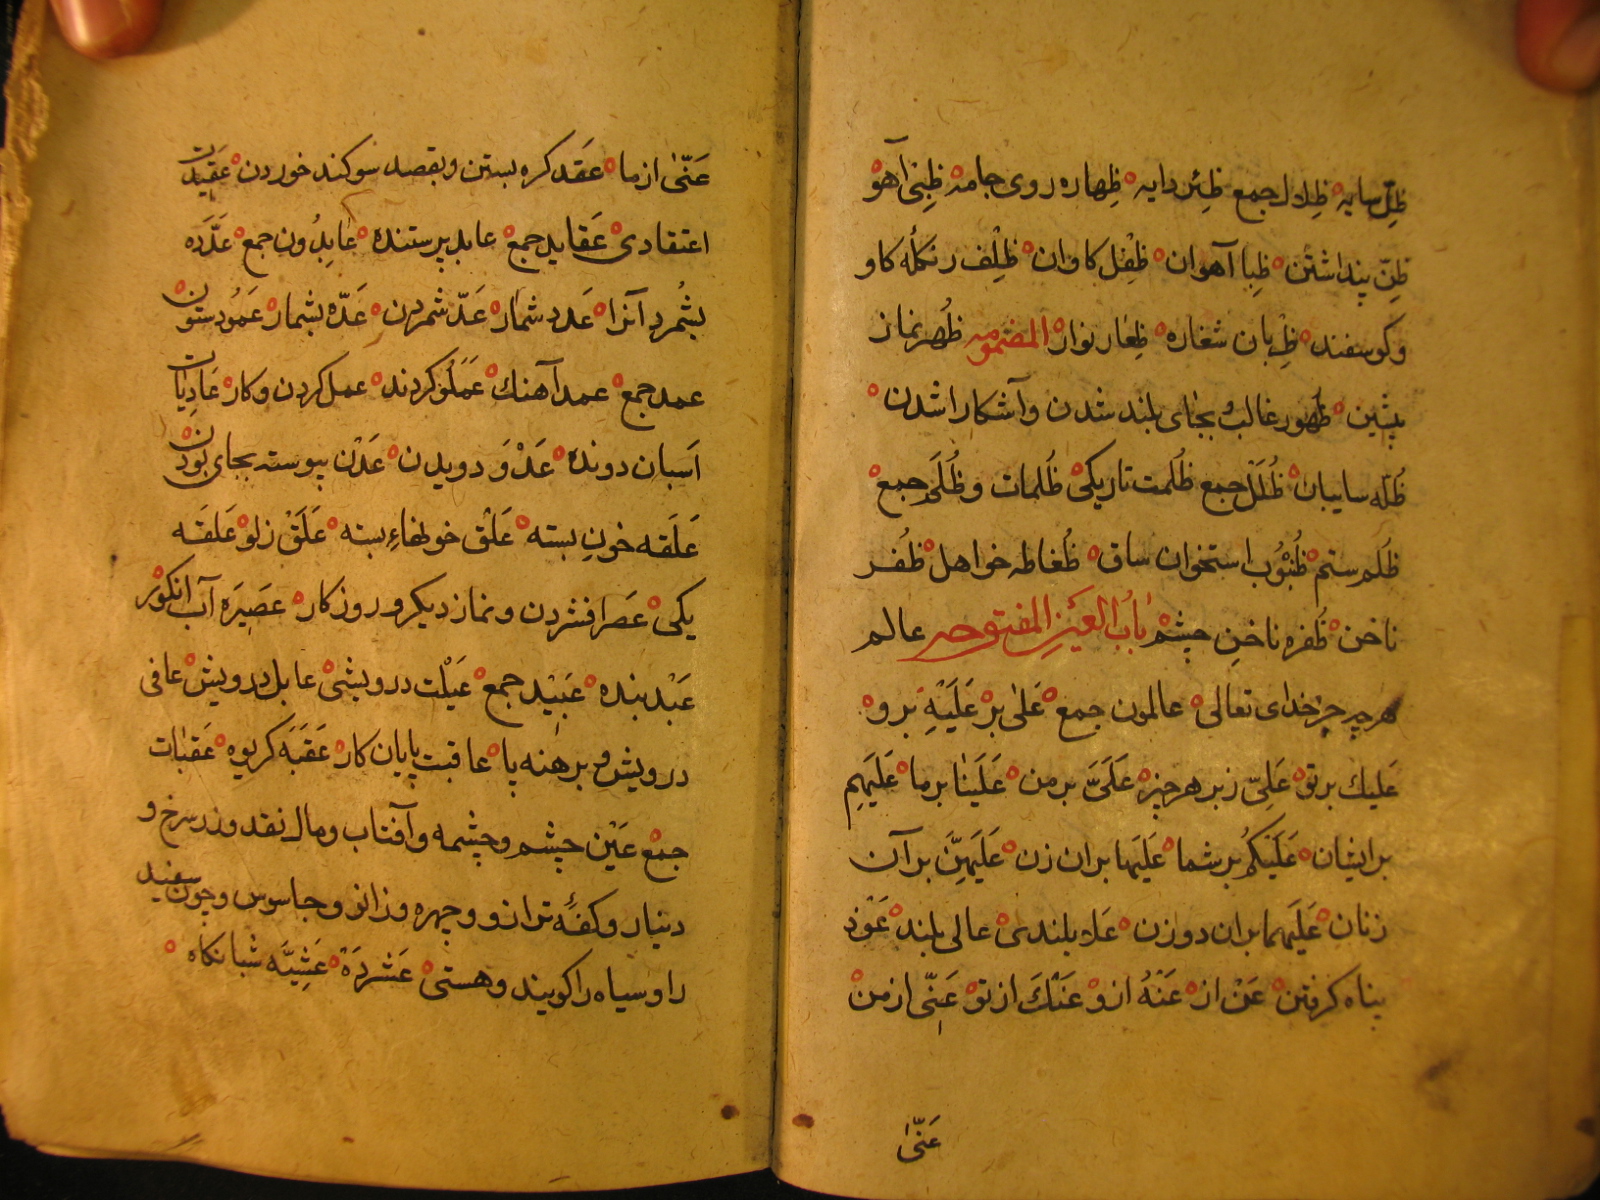 ظِلّ سایه ظِلال جمع ظِئر دایه ظِهاره روی جامه ظِبْیٌ آهو
ظِنّ پنداشتن ظِبا آهوان ظِفْل کاوان ظِلْف زنکله کاو
وکوسفند ظِربان شغاره ظِغار نوار المضمومه ظُهر نماز
پیشین ظُهور غالب و بجای بلند شدن وآشکارا شدن
ظُلّه سایبان ظُلَل جمع ظُلمت تاریکی ظُلمات وظُلَم جمع
ظُلم ستم ظُنْبُوب استخوان ساق ظُغاطه خواهل ظُفر
ناخن ظُفره ناخن چشم باب العین المفتوحه عالم
هرچه جز خدای تعالی عالمون جمع عَلیٰ بر عَلَیْهِ برو
عَلیك برتو عَلِیّ زبر هرچیز عَلَیَّ برمن عَلَیْنٰا برما عَلَیهِم
برایشان عَلَیْکُم برشما عَلَیها بران زن عَلَیهِنَّ برآن
زنان عَلَیهما بران دوزن عَلاء بلندی عالی بلند عَوْذ
پناه کرفتن عَنْ از عَنْهُ ازو عَنْكَ ازتو عَنّی ازمن
عَنّٰا
عَنّٰا ازما عَقد کره بستن وبقصد سوکند خوردن عَقیدت
اعتقادی عَقاید جمع عابد پرستنده عٰابِدُون جمع عَدَّدَه
بشُمرد آنرا عَدد شمار عَدّ شمردن عَدّه بشمار عَمُود ستون
عمد جمع عمد آهنك عَمَلُو کردند عمل کردن وکار عَادِیٰات
اَسبان دونده عَدْوَ دویدن عَدْن پیوسته بجای بودن
عَلَقه خونِ بسته عَلَق خونهاءِ بسته عَلَقْ زلو عَلَقَه
یکی عَصر افشردن ونماز دیکر وروزکار عَصِیرَه آب انکور
عَبْد بنده عَبِیْد جمع عَیْلَت درویشی عایل درویش عافی
درویش و برهنه پا عاقبت پایان کار عَقَبَه کریوه عَقَبات
جمع عَیْن چشم وچشمه وآفتاب ومال نقد وزر سرخ و
دینار وکفهٔ ترازو وچهره وزانو وجاسوس وچون سفید
را وسیاه را کویند وهستی عَشر دَه عَشِیَّه شبانکاه